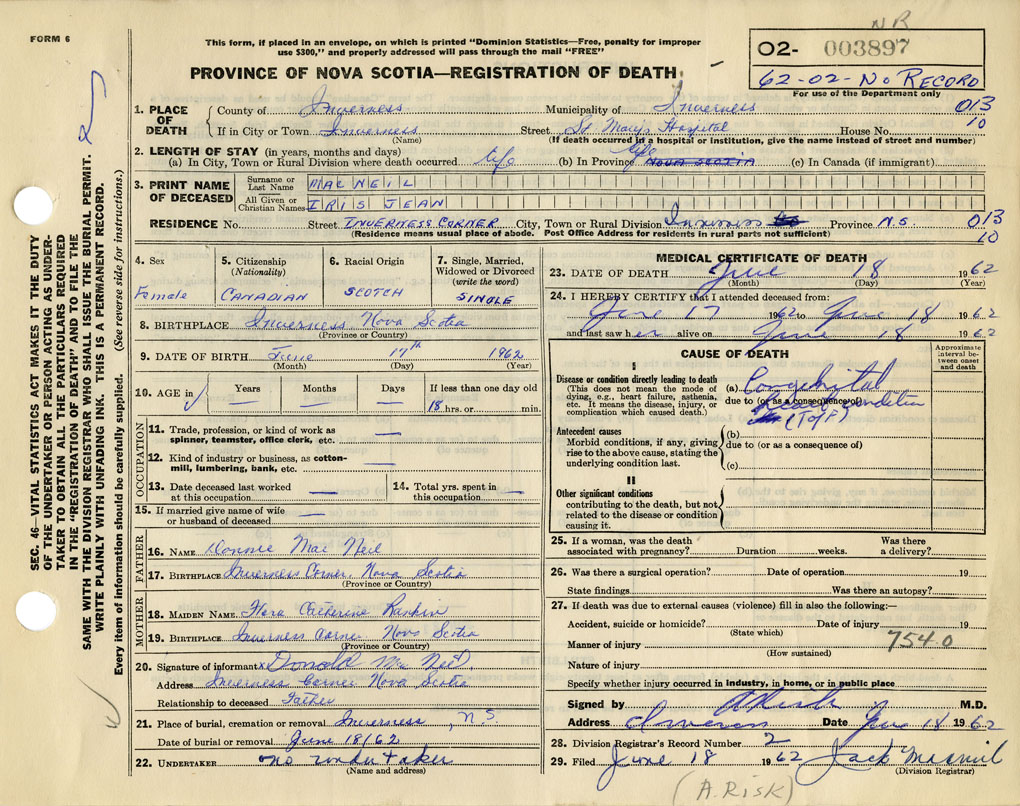 FORM 6
NR
This form, if placed in an envelope, on which is printed "Dominion Statistics—Free, penalty for improper
use $300," and properly addressed will pass through the mail "FREE"
PROVINCE OF NOVA SCOTIA—REGISTRATION OF DEATH
O2- 003897
62-02-No Record
For use of the Department only
013
10
1. PLACE OF DEATH
County of Inverness Municipality of Inverness
If in City or Town Inverness Street St. Mary's Hospital House No.
(Name) (If death occurred in a hospital or Institution, give the name instead of street and number)
2. LENGTH OF STAY (in years, months and days)
(a) In City, Town or Rural Division where death occurred life (b) In Province life NOVA SCOTIA (c) In Canada (if immigrant)
3. PRINT NAME OF DECEASED
Surname or Last Name MAC NEIL
All Given or Christian Names IRIS JEAN
RESIDENCE No. Street INVERNESS CORNER City, Town or Rural Division Inverness Province N.S. 013
10
(Residence means usual place of abode. Post Office Address for residents in rural parts not sufficient)
4. Sex Female
5. Citizenship (Nationality) CANADIAN
6. Racial Origin SCOTCH
7. Single, Married, Widowed or Divorced (write the word) SINGLE
8. BIRTHPLACE Inverness Nova Scotia
(Province or Country)
9. DATE OF BIRTH June 17th 1962
(Month) (Day) (Year)
10. AGE in Years Months Days If less than one day old
— — — 18 hrs. or min.
OCCUPATION
11. Trade, profession, or kind of work as spinner, teamster, office clerk, etc. —
12. Kind of industry or business, as cotton-mill, lumbering, bank, etc. —
13. Date deceased last worked at this occupation —
14. Total yrs. spent in this occupation —
15. If married give name of wife or husband of deceased —
FATHER
16. NAME Donnie Mac Neil
17. BIRTHPLACE Inverness Corner, Nova Scotia
(Province or Country)
MOTHER
18. MAIDEN NAME Flora Catherine Rankin
19. BIRTHPLACE Inverness Corner Nova Scotia
(Province or Country)
20. Signature of informant x Donald Mc Neil
Address Inverness Corner Nova Scotia
Relationship to deceased Father
21. Place of burial, cremation or removal Inverness, N.S.
Date of burial or removal June 18/62
22. UNDERTAKER no undertaker
(Name and address)
MEDICAL CERTIFICATE OF DEATH
23. DATE OF DEATH June 18 1962
(Month) (Day) (Year)
24. I HEREBY CERTIFY that I attended deceased from:
June 17 1962 to June 18 1962
and last saw her alive on June 18 1962
CAUSE OF DEATH
Approximate interval between onset and death
I
Disease or condition directly leading to death
(This does not mean the mode of dying, e.g., heart failure, asthenia, etc. It means the disease, injury, or complication which caused death.)
(a) Congenital
due to (or as a consequence of)
heart condition
(ToF)
Antecedent causes
Morbid conditions, if any, giving rise to the above cause, stating the underlying condition last.
(b)
due to (or as a consequence of)
(c)
II
Other significant conditions
contributing to the death, but not related to the disease or condition causing it.
25. If a woman, was the death associated with pregnancy? Duration weeks. Was there a delivery?
26. Was there a surgical operation? Date of operation 19
State findings Was there an autopsy?
27. If death was due to external causes (violence) fill in also the following:—
Accident, suicide or homicide? Date of injury 19
(State which)
Manner of injury 7540
(How sustained)
Nature of injury
Specify whether injury occurred in industry, in home, or in public place
Signed by A Risk M.D.
Address Inverness Date June 18 1962
28. Division Registrar's Record Number 2
29. Filed June 18 1962 Jack
(Division Registrar)
(A. RISK)
SEC. 46—VITAL STATISTICS ACT MAKES IT THE DUTY
OF THE UNDERTAKER OR PERSON ACTING AS UNDER-
TAKER TO OBTAIN ALL THE PARTICULARS REQUIRED
IN THE "REGISTRATION OF DEATH" AND TO FILE THE
SAME WITH THE DIVISION REGISTRAR WHO SHALL ISSUE THE BURIAL PERMIT.
WRITE PLAINLY WITH UNFADING INK. THIS IS A PERMANENT RECORD.
Every item of information should be carefully supplied. (See reverse side for instructions.)
2